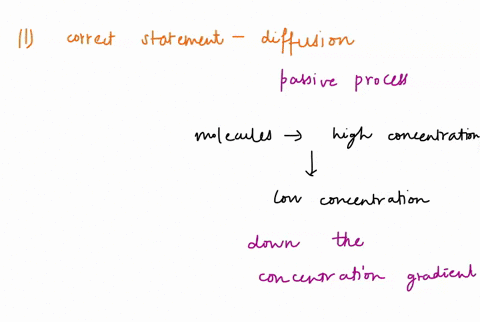 (1) correct statement - diffusion
passive process
molecules → high concentration
↓
low concentration
down the
concentration gradient